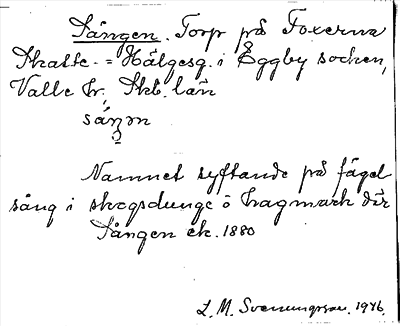 Sången. Torp på Foxerna
Skatte- = Hälgesg. i Eggby socken,
Valle hr, Skb. län
Namnet syftande på fågel
sång i skogsdunge o hagmark där
Sången ek. 1880
L. M. Svenungsson. 1946.